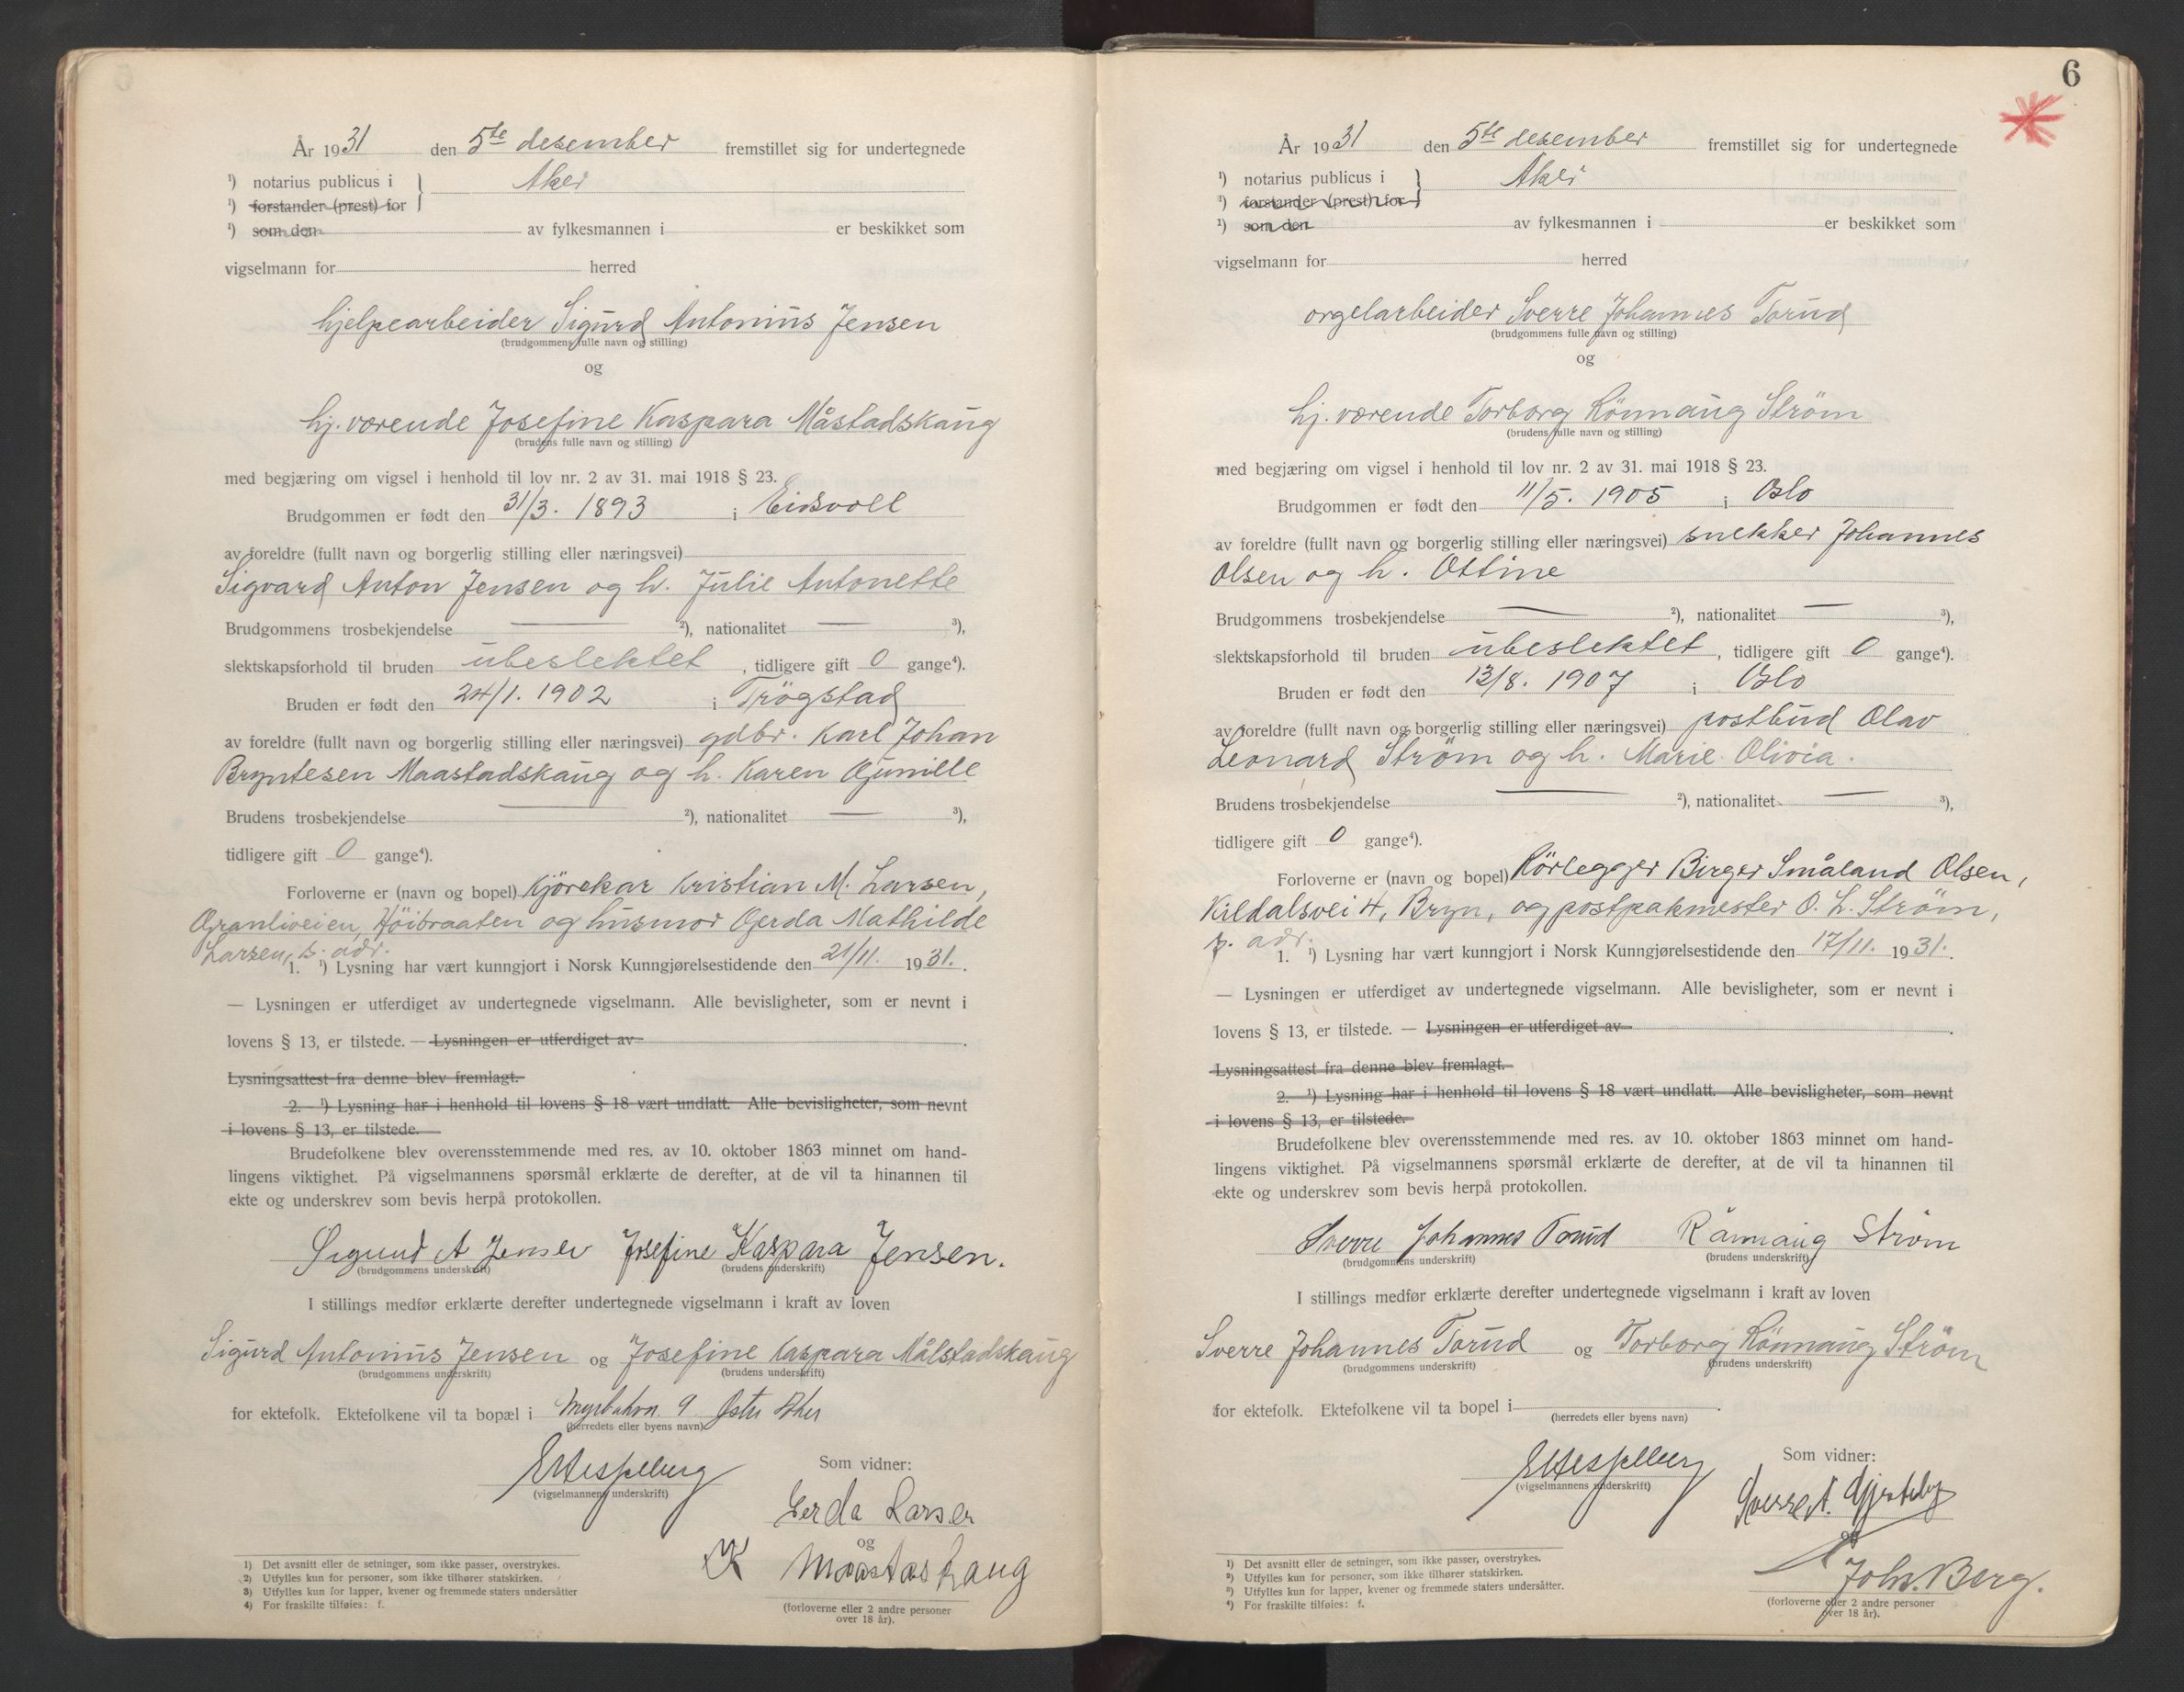 År 1931 den 5te desember fremstillet sig for undertegnede
¹) notarius publicus i Aker
¹) forstander (prest) for
¹) som den av fylkesmannen i er beskikket som
vigselmann for herred
hjelpearbeider Sigurd Antonius Jensen
(brudgommens fulle navn og stilling)
og
hj. værende Josefine Kaspara Måstadskaug
(brudens fulle navn og stilling)
med begjæring om vigsel i henhold til lov nr. 2 av 31. mai 1918 § 23.
Brudgommen er født den 31/3. 1893 i Eidsvoll
av foreldre (fullt navn og borgerlig stilling eller næringsvei)
Sigvard Anton Jensen og h. Julie Antonette
Brudgommens trosbekjendelse — ²), nationalitet — ³),
slektskapsforhold til bruden ubeslektet, tidligere gift 0 gange⁴).
Bruden er født den 24/1. 1902 i Trögstad
av foreldre (fullt navn og borgerlig stilling eller næringsvei) gdbr. Karl Johan
Bryntesen Maastadskaug og h. Karen Gunille
Brudens trosbekjendelse — ²), nationalitet — ³),
tidligere gift 0 gange⁴).
Forloverne er (navn og bopel) Kjörekar Kristian M. Larsen,
Granliveien, Höibraaten og husmor Gerda Mathilde
Larsen, s. adr.
1. ¹) Lysning har vært kunngjort i Norsk Kunngjørelsestidende den 21/11. 1931.
— Lysningen er utferdiget av undertegnede vigselmann. Alle bevisligheter, som er nevnt i
lovens § 13, er tilstede. — Lysningen er utferdiget av
Lysningsattest fra denne blev fremlagt.
2. ¹) Lysning har i henhold til lovens § 18 vært undlatt. Alle bevisligheter, som nevnt
i lovens § 13, er tilstede.
Brudefolkene blev overensstemmende med res. av 10. oktober 1863 minnet om hand-
lingens viktighet. På vigselmannens spørsmål erklærte de derefter, at de vil ta hinannen til
ekte og underskrev som bevis herpå protokollen.
Sigurd A Jensen Josefine Kaspara Jensen.
(brudgommens underskrift) (brudens underskrift)
I stillings medfør erklærte derefter undertegnede vigselmann i kraft av loven
Sigurd Antonius Jensen og Josefine Kaspara Målstadskaug
(brudgommens underskrift) (brudens underskrift)
for ektefolk. Ektefolkene vil ta bopæl i 9 Østre Aker
(herredets eller byens navn)
Som vidner:
(vigselmannens underskrift)
Gerda Larsen
og
K Maastaskaug
(forloverne eller 2 andre personer
over 18 år).
1) Det avsnitt eller de setninger, som ikke passer, overstrykes.
2) Utfylles kun for personer, som ikke tilhører statskirken.
3) Utfylles kun for lapper, kvener og fremmede staters undersåtter
4) For fraskilte tilføies: f.
6
År 1931 den 5te desember fremstillet sig for undertegnede
¹) notarius publicus i Aker
¹) forstander (prest) for
¹) som den av fylkesmannen i er beskikket som
vigselmann for herred
orgelarbeider Sverre Johannes Torud
(brudgommens fulle navn og stilling)
og
hj. værende Torborg Rönnaug Ström
(brudens fulle navn og stilling)
med begjæring om vigsel i henhold til lov nr. 2 av 31. mai 1918 § 23.
Brudgommen er født den 11/5. 1905 i Oslo
av foreldre (fullt navn og borgerlig stilling eller næringsvei) snekker Johannes
Olsen og h. Ottine
Brudgommens trosbekjendelse — ²), nationalitet — ³),
slektskapsforhold til bruden ubeslektet, tidligere gift 0 gange⁴).
Bruden er født den 13/8. 1907 i Oslo
av foreldre (fullt navn og borgerlig stilling eller næringsvei) postbud Olav
Leonard Ström og h. Marie Olivia.
Brudens trosbekjendelse — ²), nationalitet — ³),
tidligere gift 0 gange⁴).
Forloverne er (navn og bopel) Rörlegger Birger Småland Olsen,
Kildalsvei 4, Bryn, og postpakmester O. L. Ström,
s. adr.
1. ¹) Lysning har vært kunngjort i Norsk Kunngjørelsestidende den 17/11. 1931.
— Lysningen er utferdiget av undertegnede vigselmann. Alle bevisligheter, som er nevnt i
lovens § 13, er tilstede. — Lysningen er utferdiget av
Lysningsattest fra denne blev fremlagt.
2. ¹) Lysning har i henhold til lovens § 18 vært undlatt. Alle bevisligheter, som nevnt
i lovens § 13, er tilstede.
Brudefolkene blev overensstemmende med res. av 10. oktober 1863 minnet om hand-
lingens viktighet. På vigselmannens spørsmål erklærte de derefter, at de vil ta hinannen til
ekte og underskrev som bevis herpå protokollen.
Sverre Johannes Torud Rånnaug Strøm
(brudgommens underskrift) (brudens underskrift)
I stillings medfør erklærte derefter undertegnede vigselmann i kraft av loven
Sverre Johannes Torud og Torborg Rönnaug Ström
(brudgommens underskrift) (brudens underskrift)
for ektefolk. Ektefolkene vil ta bopel i
(herredets eller byens navn)
Som vidner:
(vigselmannens underskrift)
Sverre A.
og
Joh. Berg.
(forloverne eller 2 andre personer
over 18 år).
¹) Det avsnitt eller de setninger, som ikke passer, overstrykes.
²) Utfylles kun for personer, som ikke tilhører statskirken.
³) Utfylles kun for lapper, kvener og fremmede staters undersåtter.
⁴) For fraskilte tilføies: f.